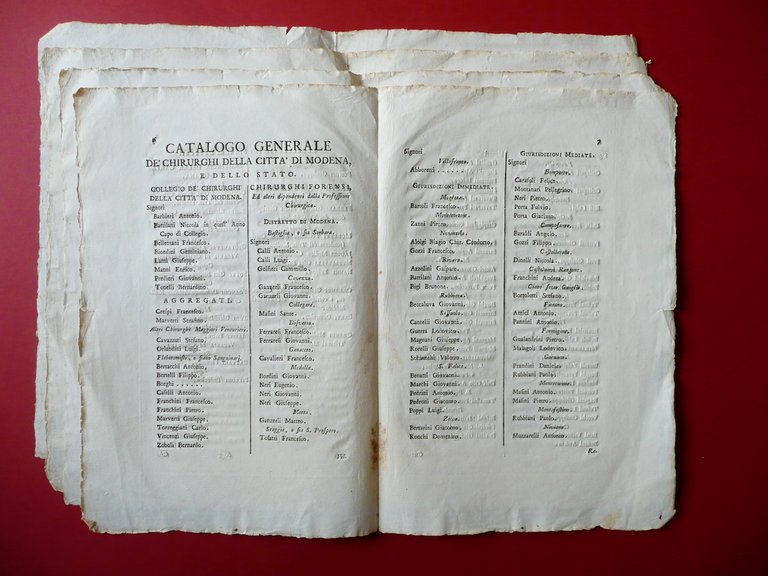 CATALOGO GENERALE
DE' CHIRURGHI DELLA CITTA' DI MODENA,
E DELLO STATO.
COLLEGIO DE' CHIRURGHI
DELLA CITTA' DI MODENA.
Signori
Barbieri Antonio.
Bartilani Niccola in quest' Anno
Capo di Collegio.
Bellentani Francesco.
Biondini Geminiano.
Lami Giuseppe.
Manni Enrico.
Predieri Giovanni.
Tonelli Bernardino.
AGGREGATI.
Crespi Francesco.
Marverti Serafino.
Altri Chirurghi Maggiori Venturieri.
Cavazzuti Stefano.
Orlandini Luigi.
Flebotomisti, o siano Sanguinarj.
Bernacchi Antonio.
Bortelli Filippo.
Borghi . . . . . .
Castelli Antonio.
Franchini Francesco.
Franchini Pietro.
Marverti Giuseppe.
Torreggiani Carlo.
Vincenzi Giuseppe.
Zoboli Bernardo.
CHIRURGHI FORENSI,
Ed altri dipendenti dalla Professione
Chirurgica.
DISTRETTO DI MODENA.
Bastiglia, e sia Sorbara.
Signori
Calli Antonio.
Calli Luigi.
Golfieri Cammillo.
Cavezzo.
Ganzerli Francesco.
Ganzerli Giovanni.
Collegara.
Masini Sante.
Disvetro.
Ferrareſi Francesco.
Ferrareſi Giovanni.
Ganaceto.
Cavalieri Francesco.
Medolla.
Bordini Giovanni.
Neri Eugenio.
Neri Giovanni.
Neri Giuseppe.
Motta.
Ganzerli Matteo.
Staggia, o sia S. Prospero.
Tosatti Francesco.
Vil-
Signori
Villafranca.
Abboretti . . . . . .
GIURISDIZIONI IMMEDIATE.
Bartoli Francesco.
Montetortore.
Zanni Pietro.
Nonantola.
Aloigi Biagio Chir. Condotto.
Gozzi Francesco.
Rivara.
Azzolini Gaspare.
Bartilani Antonio.
Bigi Brunone.
Rubbiera.
Beccaluva Giovanni.
Sassuolo.
Cantelli Giovanni.
Guerra Lodovico.
Magnani Giuseppe.
Rorelli Giuseppe.
Schianchi Valorio
S. Felice.
Benatti Giovanni.
Marchi Giovanni.
Pedrini Antonio.
Pedroni Giacomo.
Poppi Luigi.
Zocca.
Bertarini Giacomo.
Ronchi Domenico.
GIURISDIZIONI MEDIATE.
Signori
Bomporto.
Carafoli Felice.
Montanari Pellegrino.
Neri Pietro.
Porta Fulvio.
Porta Giacinto.
Camposanto.
Baraldi Angelo.
Gozzi Filippo.
Castellarano.
Dinelli Niccola.
Castelnovo Rangone.
Franchini Andrea.
Bortolotti Stefano.
Fiorano.
Amici Antonio.
Pantini Antonio.
Formigine.
Gualandrini Pietro.
Malagoli Lodovico.
Gorzano.
Prandini Daniele.
Rubbiani Paolo.
Montecuccolo.
Masini Antonio.
Masini Pietro.
Rubbiani Paolo.
Nirano.
Muzzarelli Antonio.